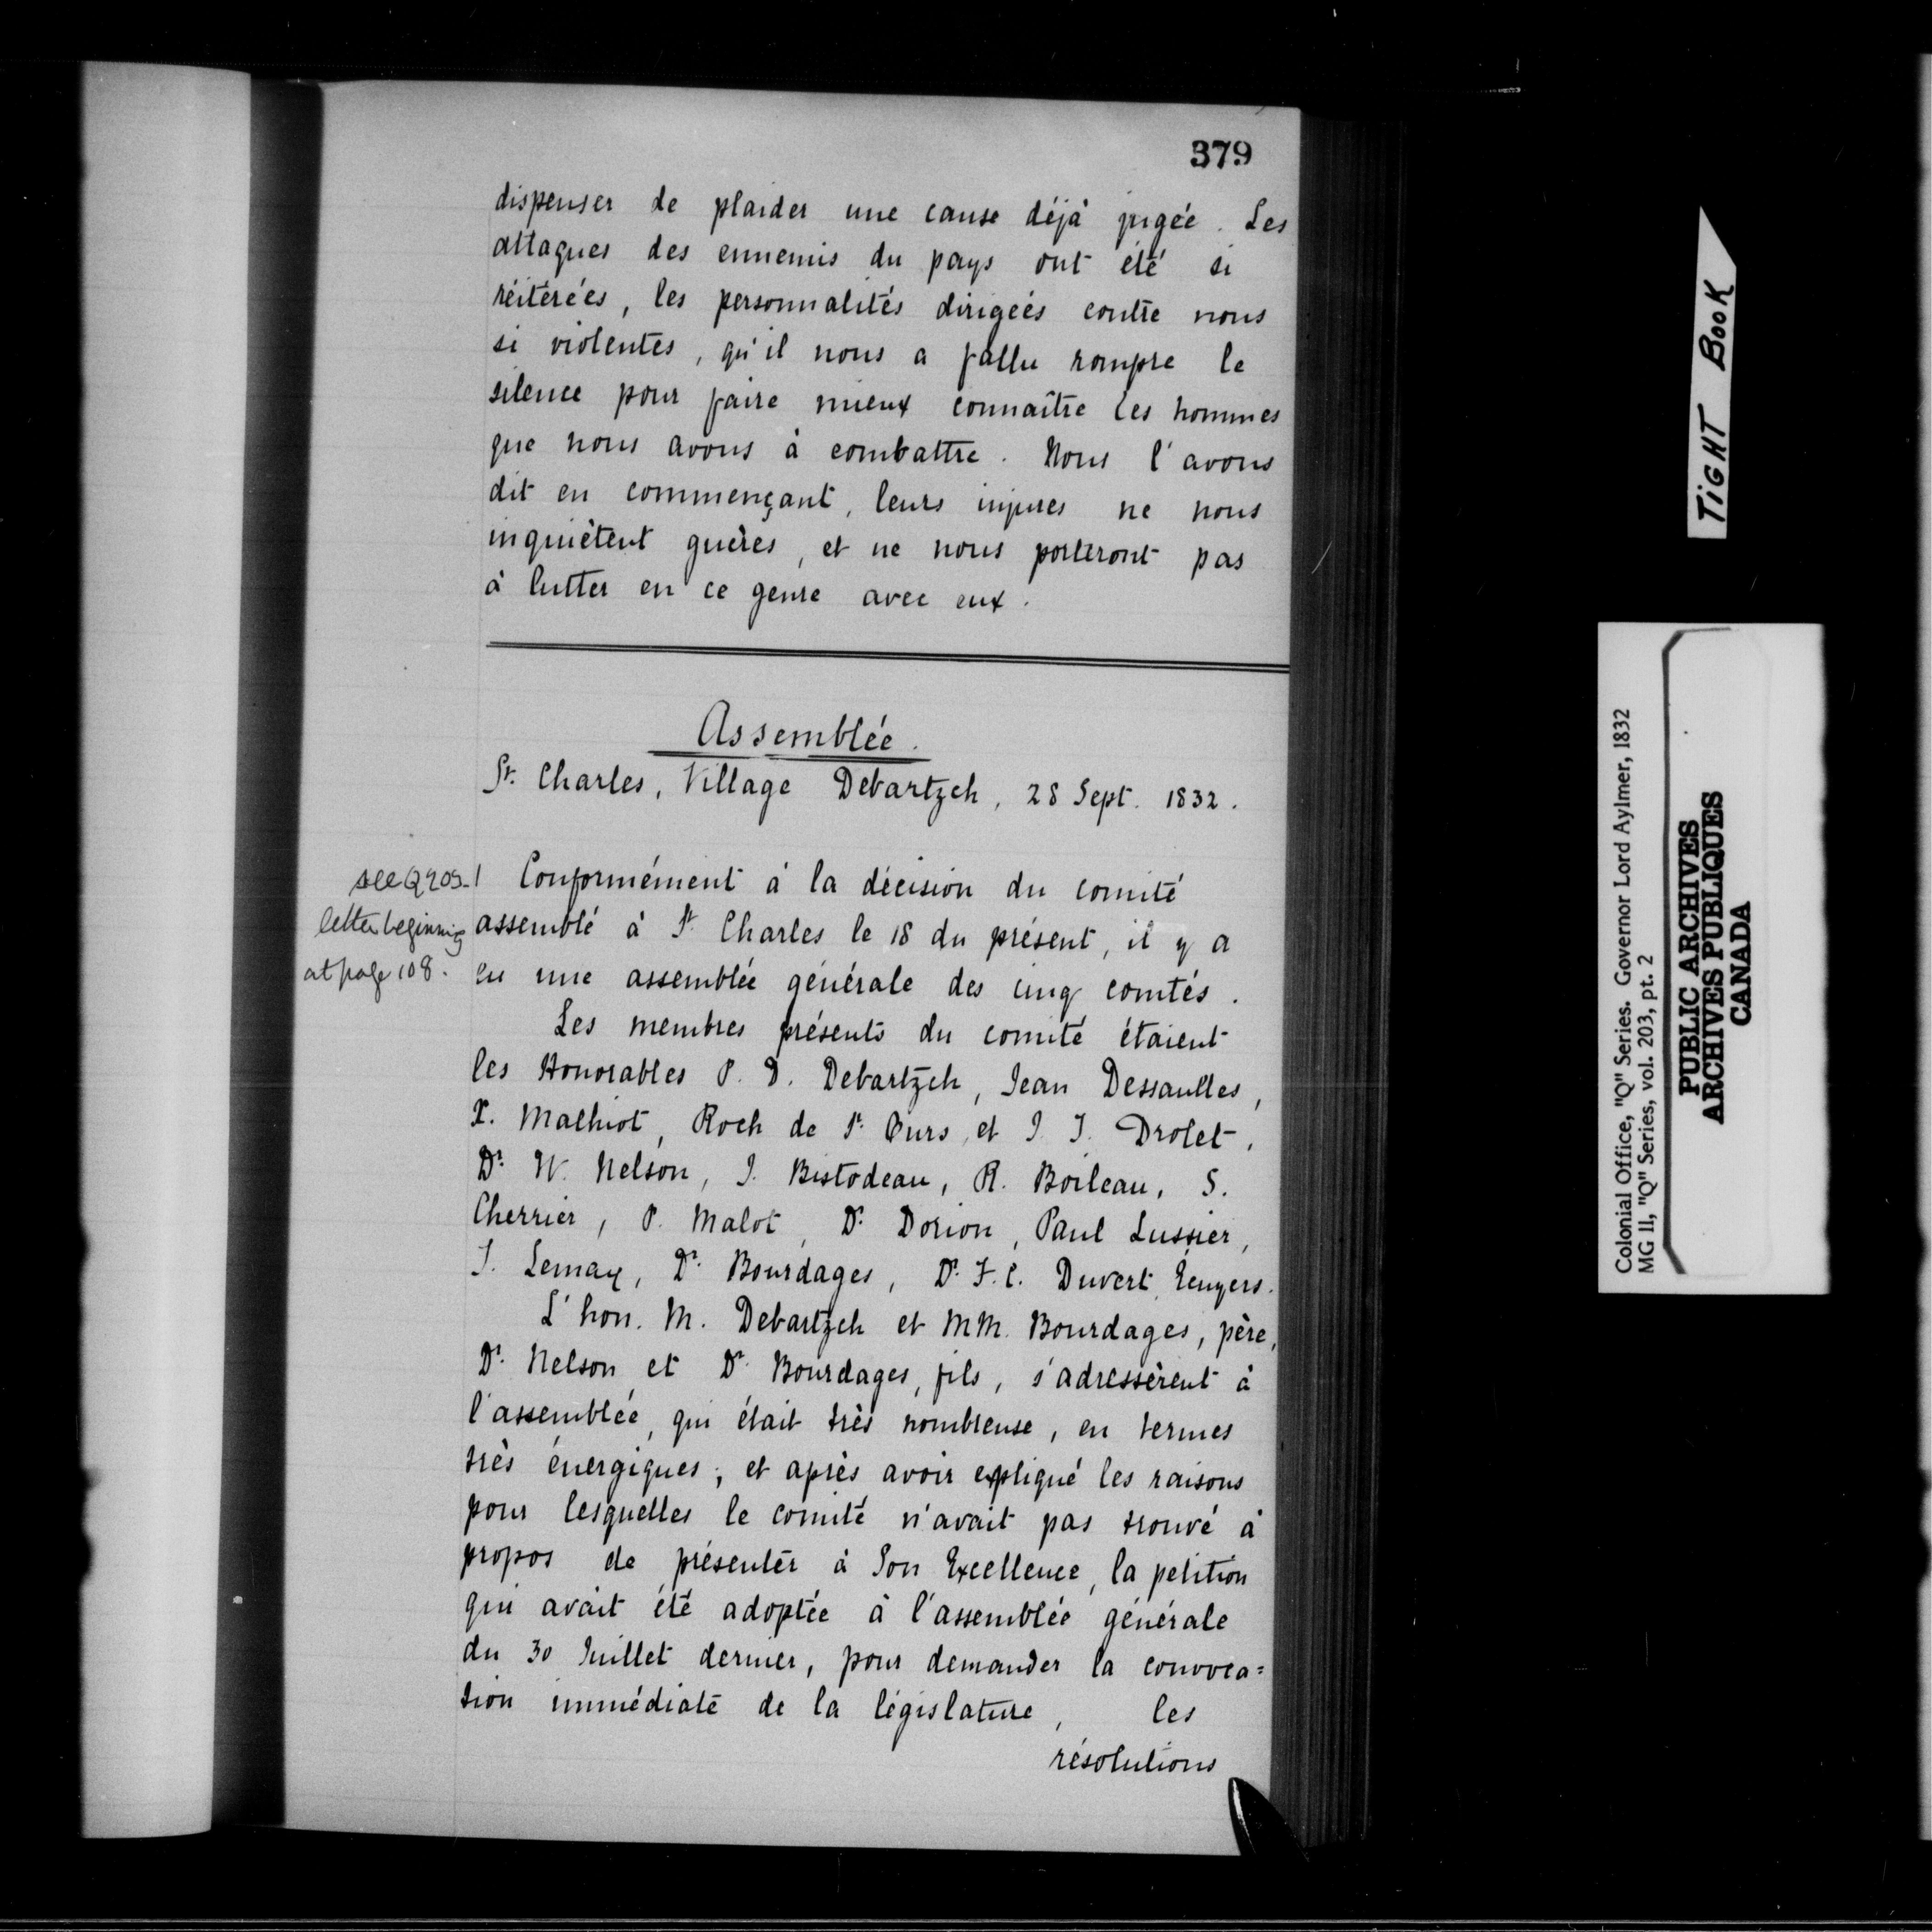 379
dispenser de plaider une cause déjà jugée. Les
attaques des ennemis du pays ont été si
réitérées, les personnalités dirigées contre nous
si violentes, qu'il nous a fallu rompre le
silence pour faire mieux connaître les hommes
que nous avons à combattre. Nous l'avons
dit en commençant, leurs injures ne nous
inquiètent guères, et ne nous porteront pas
à lutter en ce genre avec eux.
Assemblée.
St. Charles, Village Debartzch, 28 Sept. 1832.
see Q 205-1
letter beginning
at page 108.
Conformément à la décision du comité
assemblé à St. Charles le 18 du présent, il y a
eu une assemblée générale des cinq comtés.
Les membres présents du comité étaient
les Honorables P. D. Debartzch, Jean Dessaulles,
X. Malhiot, Roch de St. Ours, et J. T. Drolet,
Dr. W. Nelson, J. Bistodeau, R. Boileau, S.
Cherrier, P. Malot, Dr. Dorion, Paul Lussier,
T. Lemay, Dr. Bourdages, Dr. F. C. Duvert, Ecuyers.
L'hon. M. Debartzch et MM. Bourdages, père,
Dr. Nelson et Dr. Bourdages, fils, s'adressèrent à
l'assemblée, qui était très nombreuse, en termes
très énergiques; et après avoir expliqué les raisons
pour lesquelles le comité n'avait pas trouvé à
propos de présenter à Son Excellence, la petition
qui avait été adoptée à l'assemblée générale
du 30 Juillet dernier, pour demander la convoca=
tion immédiate de la législature, les
résolutions
TIGHT BOOK
Colonial Office, "Q" Series. Governor Lord Aylmer, 1832
MG 11, "Q" Series, vol. 203, pt. 2
PUBLIC ARCHIVES
ARCHIVES PUBLIQUES
CANADA